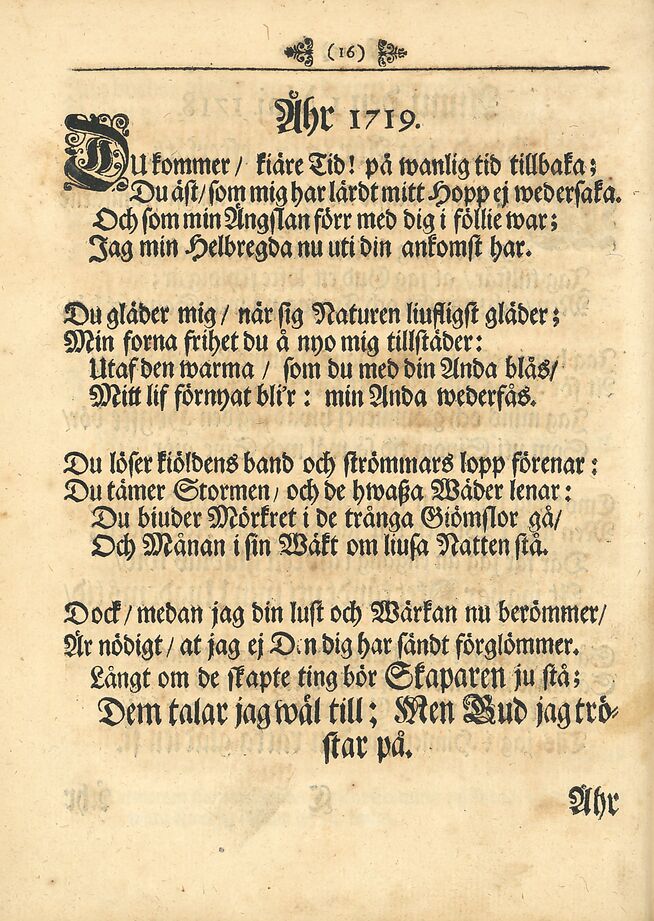 (16)
Åhr 1719.
DU kommer / kiäre Tid! på wanlig tid tillbaka;
Du äst / som mig har lärdt mitt Hopp ej wedersaka.
Och som min Ängslan förr med dig i föllie war;
Jag min Helbregda nu uti din ankomst har.
Du gläder mig / när sig Naturen liufligst gläder;
Min forna frihet du å nyo mig tillstäder:
Utaf den warma / som du med din Anda blås /
Mitt lif förnyat bli'r : min Anda wederfås.
Du löser kiöldens band och strömmars lopp förenar :
Du tämer Stormen / och de hwaßa Wäder lenar :
Du biuder Mörkret i de trånga Giömslor gå /
Och Månan i sin Wäkt om liusa Natten stå.
Dock / medan jag din lust och Wärkan nu berömmer /
Är nödigt / at jag ej Den dig har sändt förglömmer.
Långt om de skapte ting bör Skaparen ju stå;
Dem talar jag wäl till; Men Gud jag trö-
star på.
Åhr